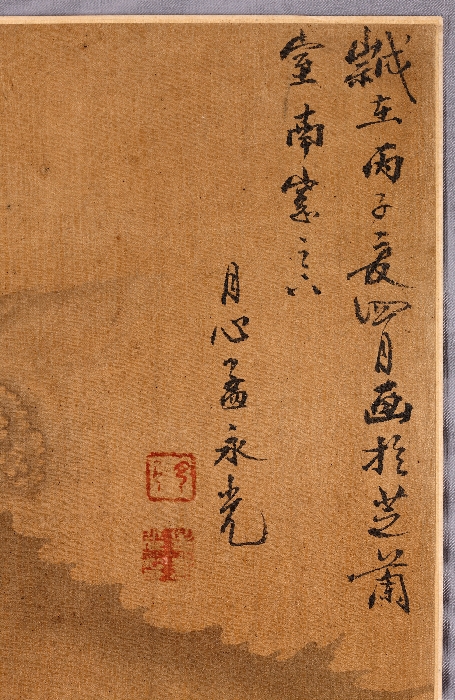 歲在丙子夏四月画於芝蕭
室南窓之下
月心孟永光